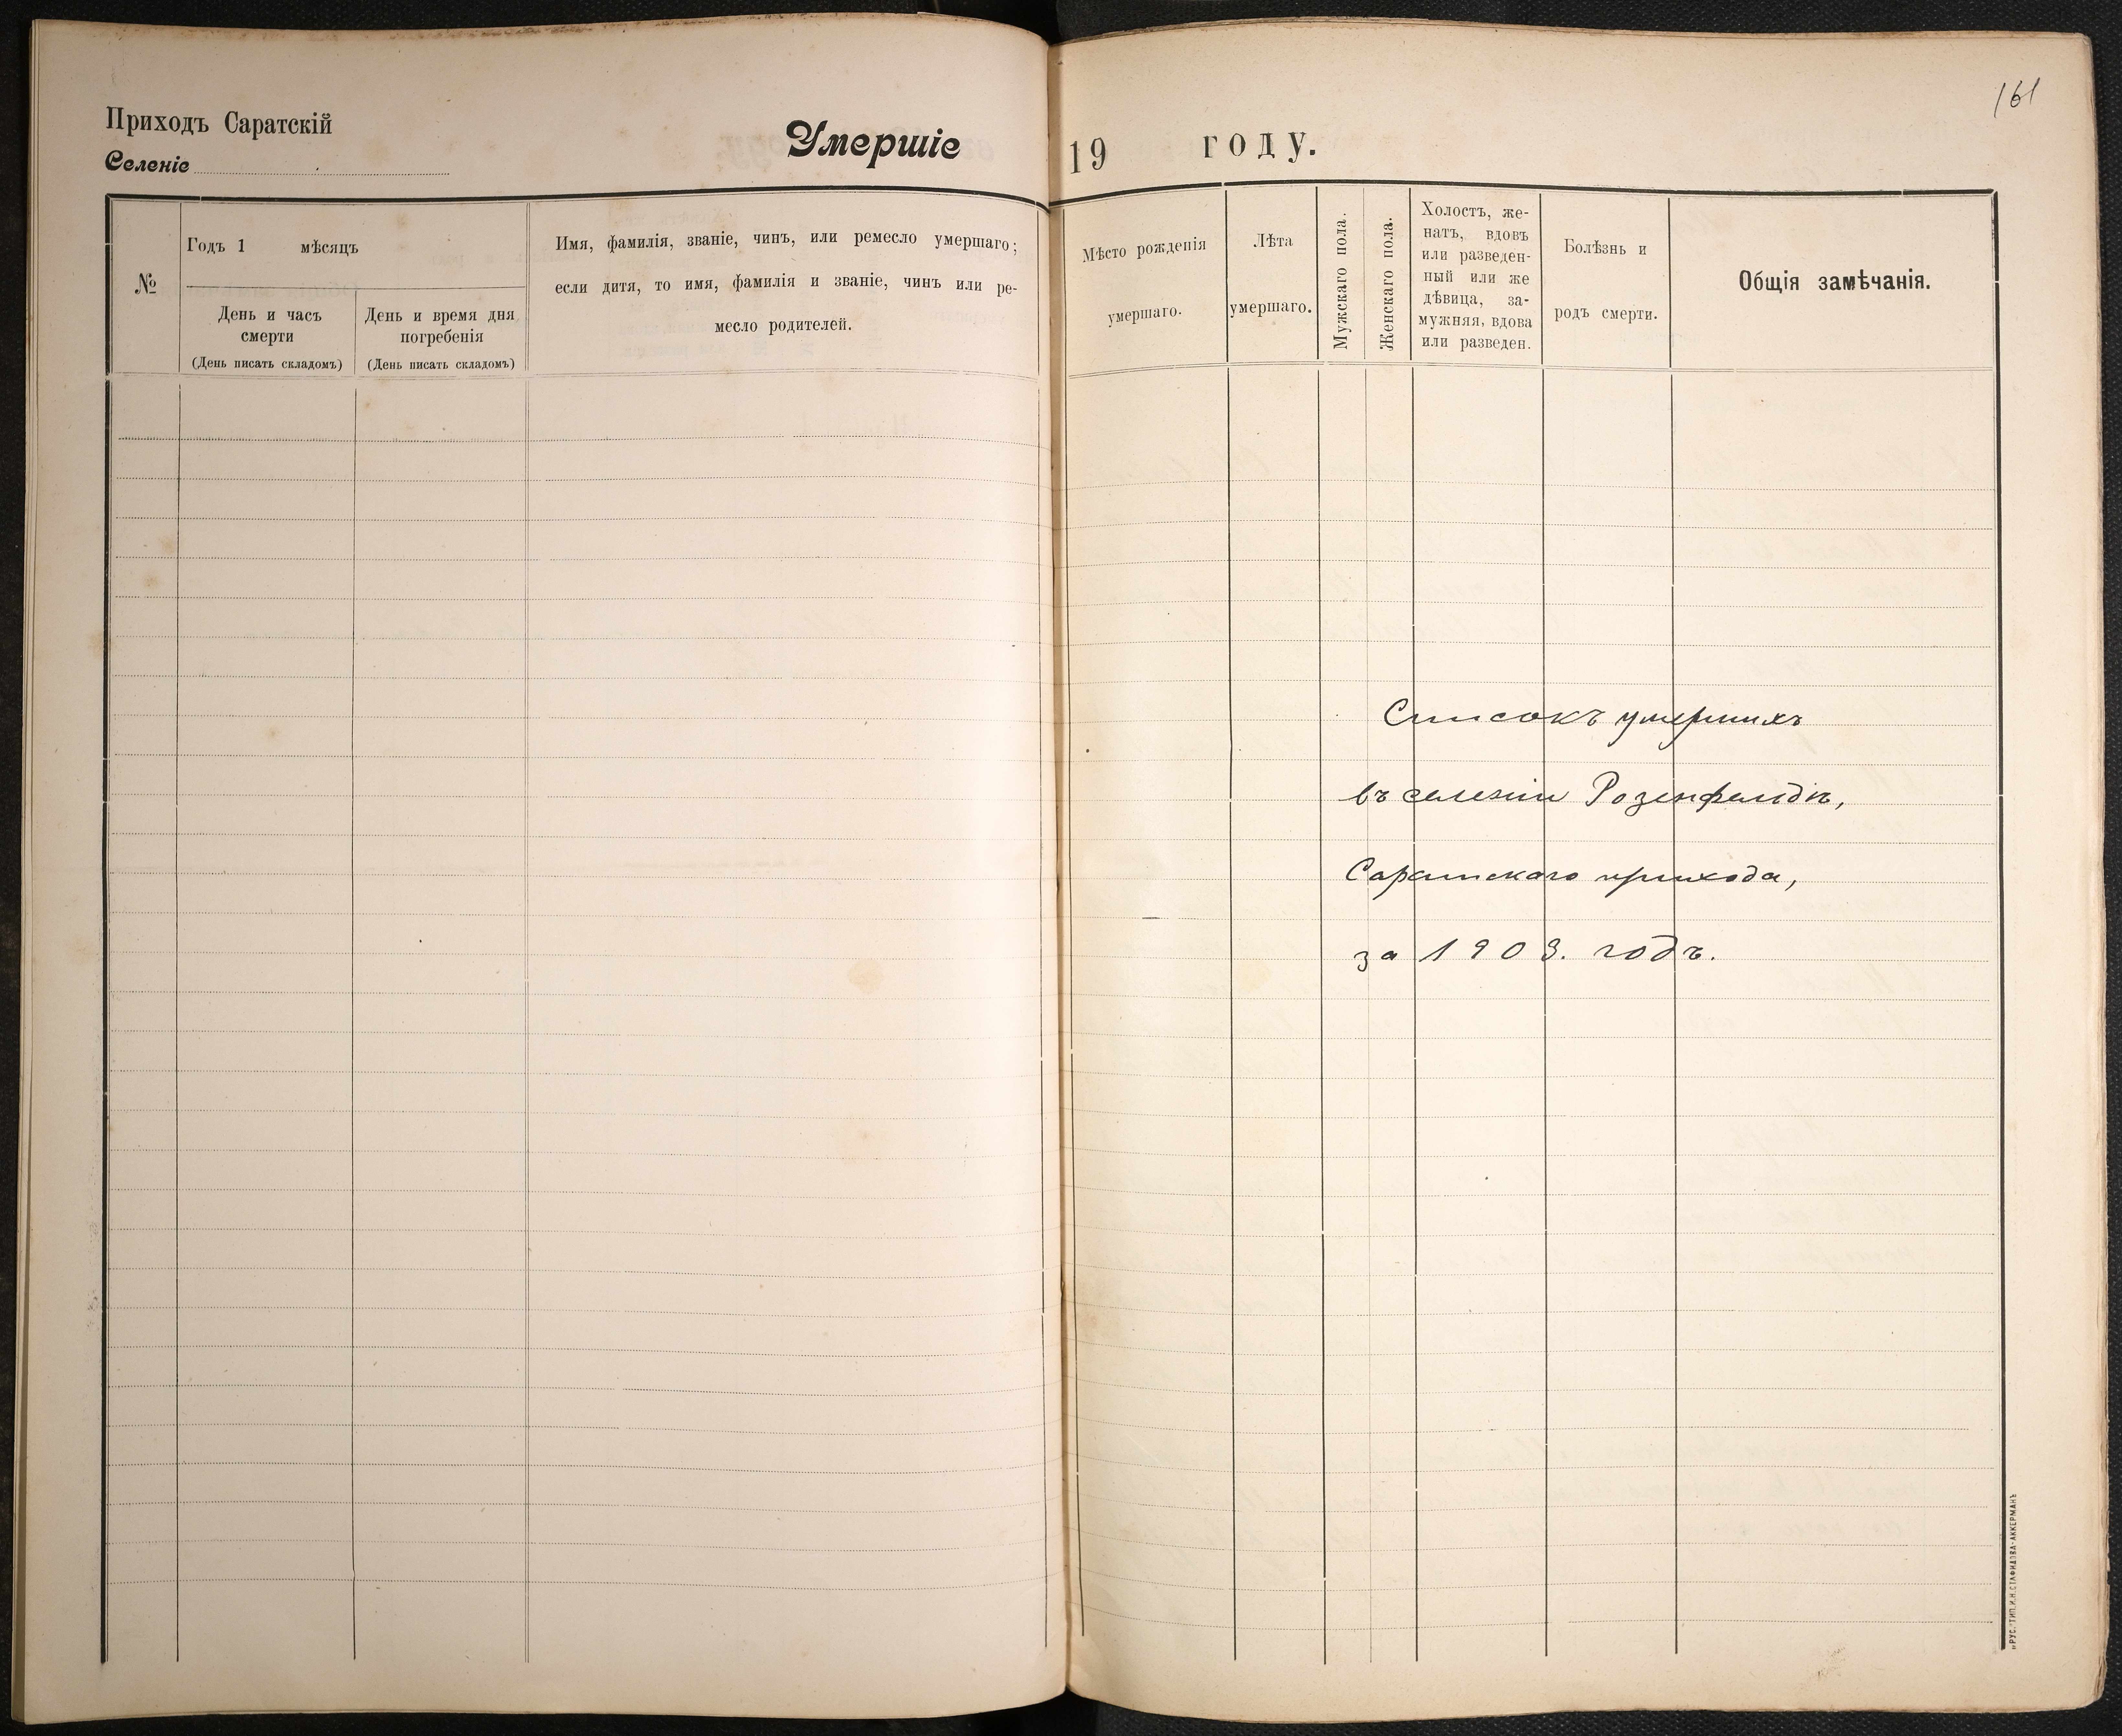 161
Приходъ Саратскій
Селеніе
Умершіе 19 году.
№
Годъ 1 мѣсяцъ
День и часъ
смерти
(День писать складомъ)
День и время дня
погребенія
(День писать складомъ)
Имя, фамилія, званіе, чинъ, или ремесло умершаго;
если дитя, то имя, фамилія и званіе, чинъ или ре-
месло родителей.
Мѣсто рожденія
умершаго.
Лѣта
умершаго.
Мужскаго пола.
Женскаго пола.
Холостъ, же-
натъ, вдовъ
или разведен-
ный или же
дѣвица, за-
мужняя, вдова
или разведен.
Болѣзнь и
родъ смерти.
Общія замѣчанія.
Списокъ умершихъ
въ селеніи Розенфельдѣ,
Саратскаго прихода,
за 1903. годъ.
„РУС.“ ТИП. И. Н. СТАФИДОВА-АККЕРМАНЪ